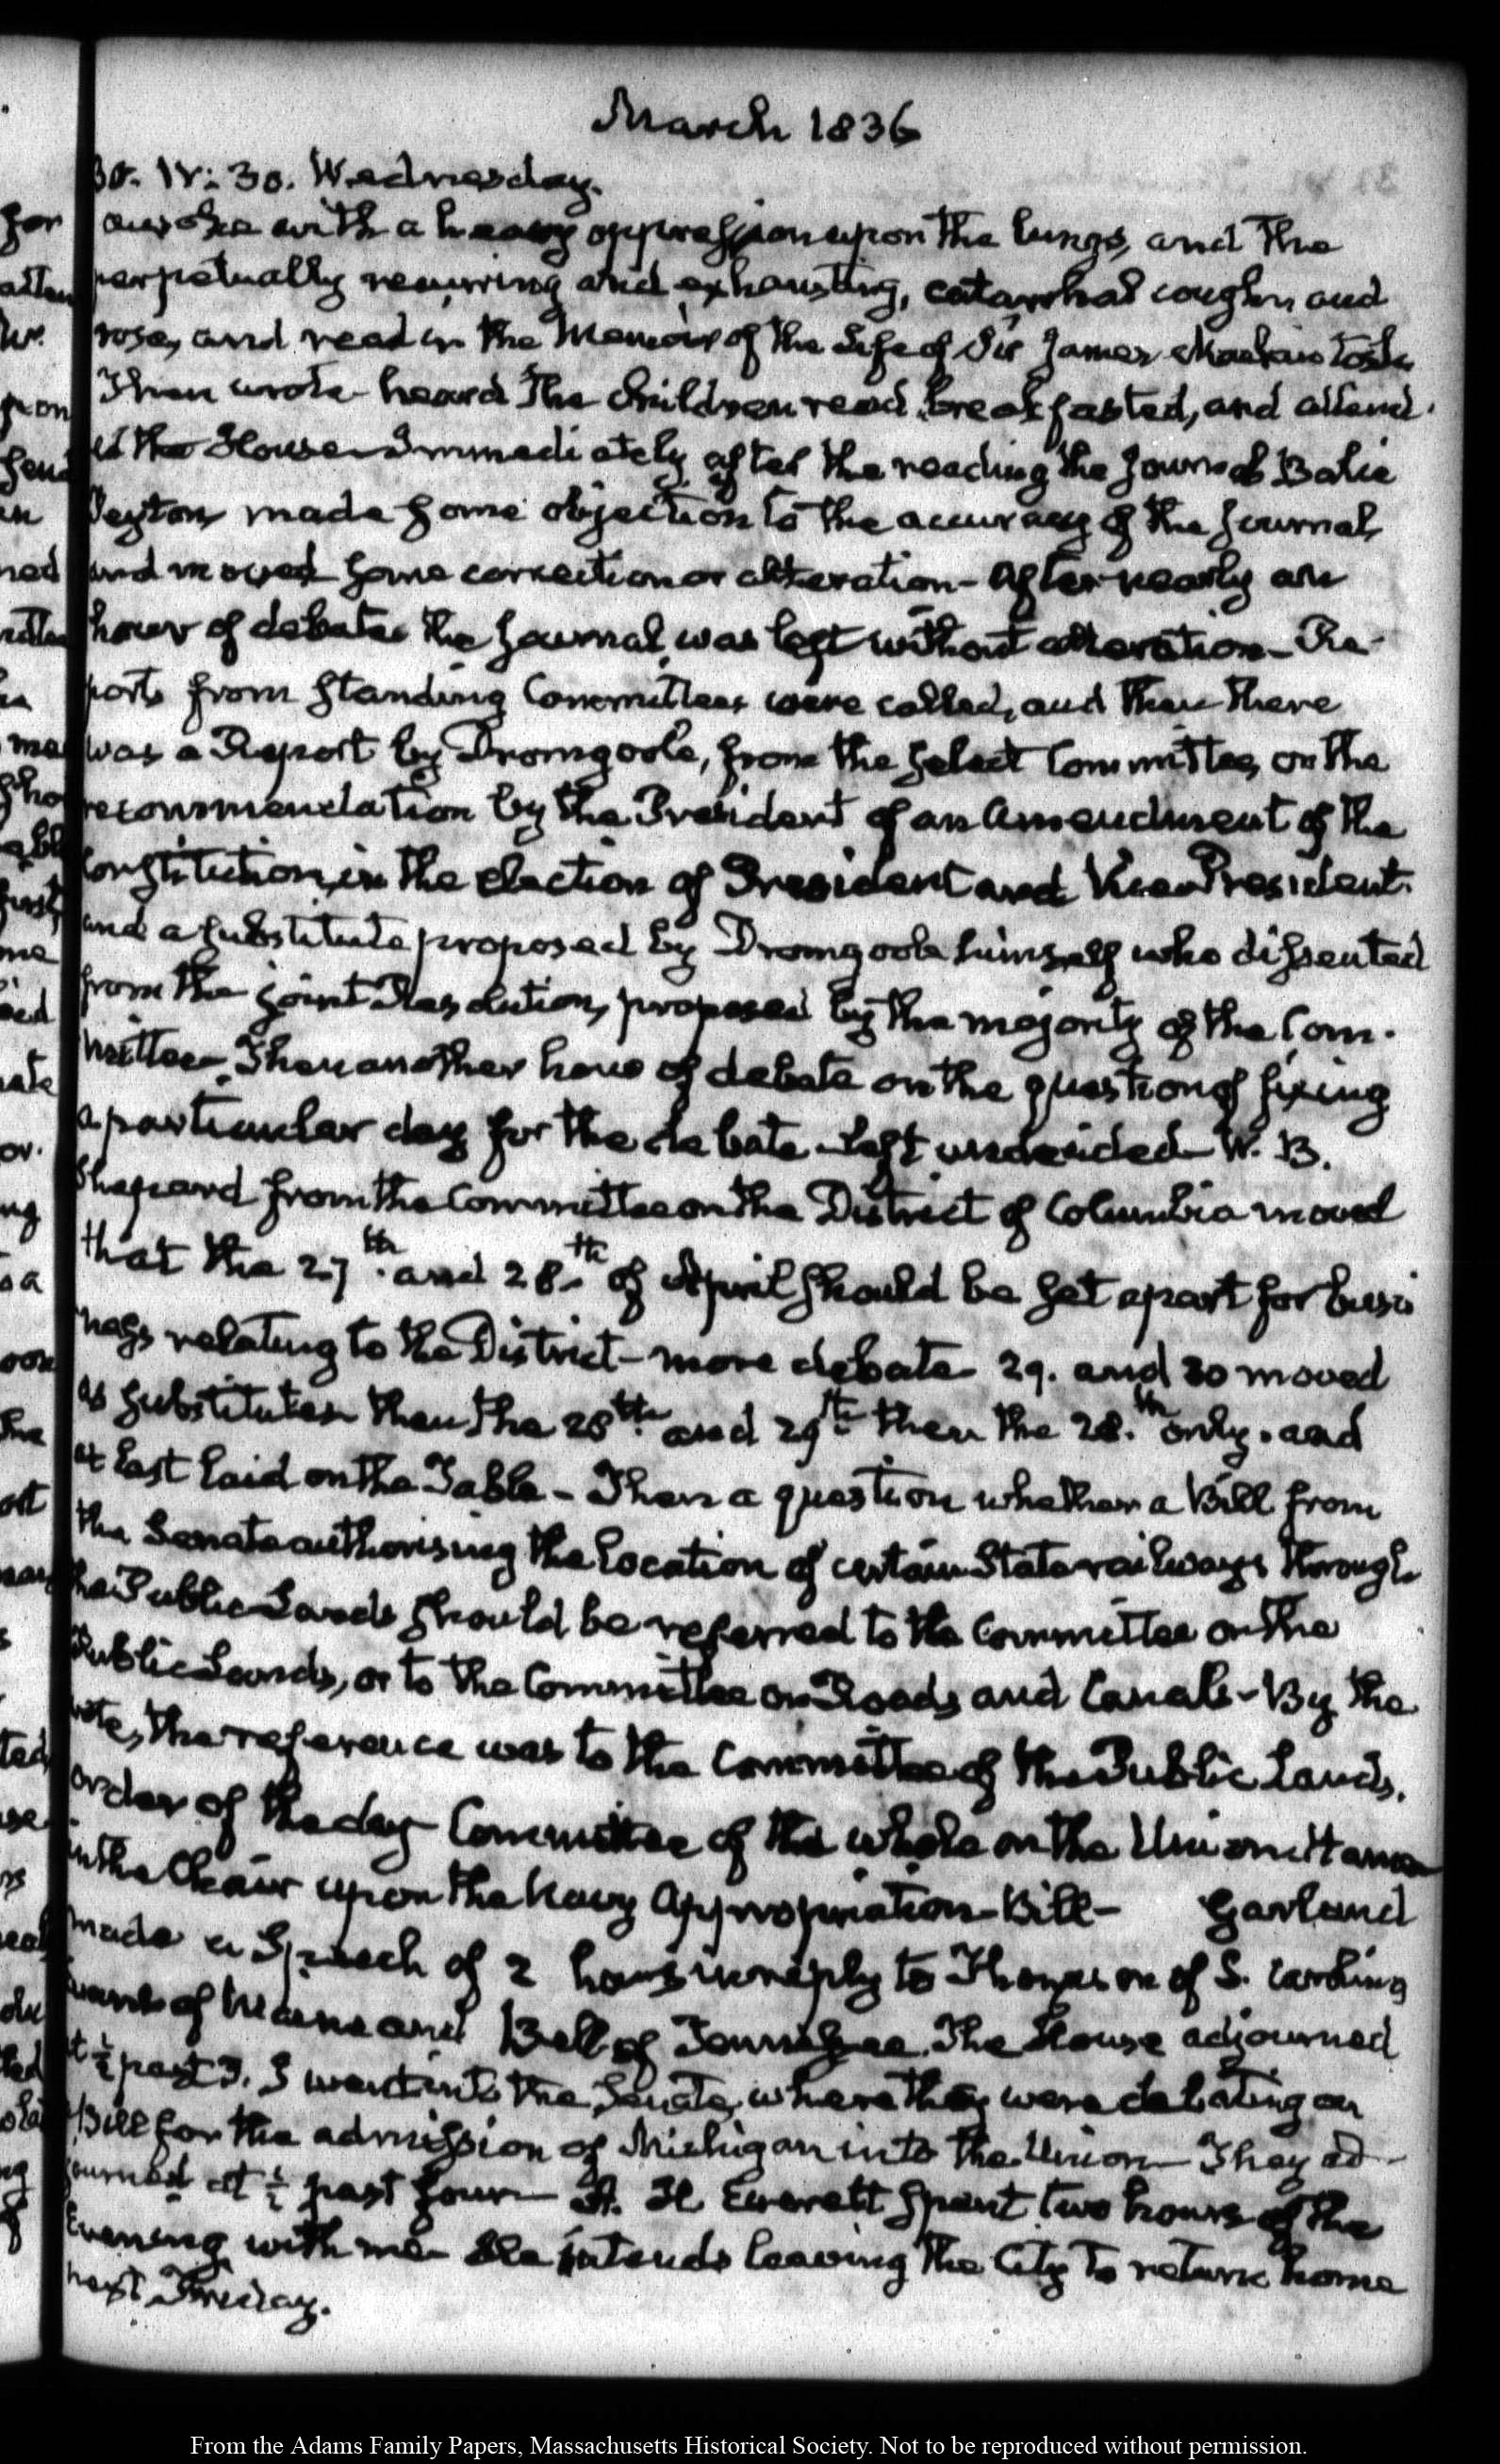 March 1836
30. IV: 30. Wednesday.
awoke with a heavy oppression upon the lungs, and the
perpetually recurring and exhausting, catarrhal cough, and
rose, and read in the Memoirs of the Life of Sir James Mackintosh
Then wrote - heard the Children read, breakfasted, and attend-
ed the House - Immediately after the reading the Journal Balie
Peyton, made some objection to the accuracy of the Journal,
and moved some correction or alteration - After nearly an
hour of debate the Journal was left without alteration - Re-
ports from standing Committees were called, and then there
was a Report by Dromgoole, from the select Committee, on the
recommendation by the President of an Amendment of the
Constitution, in the election of President and Vice President.
and a substitute proposed by Dromgoole himself who dissented
from the joint Resolution, proposed by the majority of the Com-
mittee. Then another hour of debate on the question of fixing
a particular day for the debate - left undecided - W. B.
Shepard from the Committee on the District of Columbia moved
that the 27th. and 28th of April should be set apart for busi
ness relating to the District - more debate 29. and 30 moved
as substitutes then the 28th. and 29th. then the 28.th only. and
at last laid on the Table - Then a question whether a Bill from
the Senate authorising the location of certain State railways through
the Public Lands should be referred to the Committee on the
Public Lands, or to the Committee on Roads and Canals - By the
vote, the reference was to the Committee of the Public Lands.
order of the day Committee of the whole on the Union Mann
in the Chair upon the Navy Appropriation - Bill - Garland
made a Speech of 2 hours in reply to Thompson of S. Carolina
of Maine and Bell of Tennessee. The House adjourned
at ½ past 3. I went into the Senate, where they were debating on
a Bill for the admission of Michigan into the Union - They ad-
journed at ½ past four - A. H Everett spent two hours of the
Evening with me - He intends leaving the City to return home
next Friday.
From the Adams Family Papers, Massachusetts Historical Society. Not to be reproduced without permission.